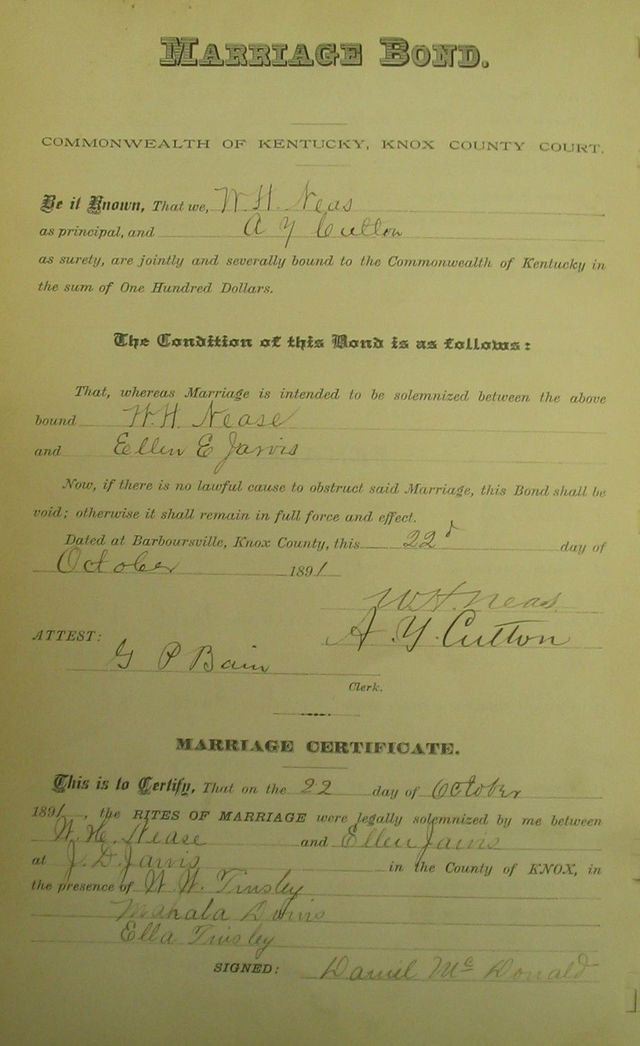 MARRIAGE BOND.
COMMONWEALTH OF KENTUCKY, KNOX COUNTY COURT.
Be it Known, That we, W. H. Neas
as principal, and A Y Cutton
as surety, are jointly and severally bound to the Commonwealth of Kentucky in
the sum of One Hundred Dollars.
The Condition of this Bond is as follows:
That, whereas Marriage is intended to be solemnized between the above
bound W. H. Nease
and Ellen E Jarvis
Now, if there is no lawful cause to obstruct said Marriage, this Bond shall be
void; otherwise it shall remain in full force and effect.
Dated at Barboursville, Knox County, this 22d day of
October 1891
W. H. Neas
A. Y. Cutton
ATTEST:
G P Bain
Clerk.
MARRIAGE CERTIFICATE.
This is to Certify, That on the 22 day of October
1891, the RITES OF MARRIAGE were legally solemnized by me between
W. H. Nease and Ellen Jarvis
at J. D. Jarvis in the County of KNOX, in
the presence of W. W. Tinsley
Mahala
Ella Tinsley
SIGNED: Daniel Mc Donald